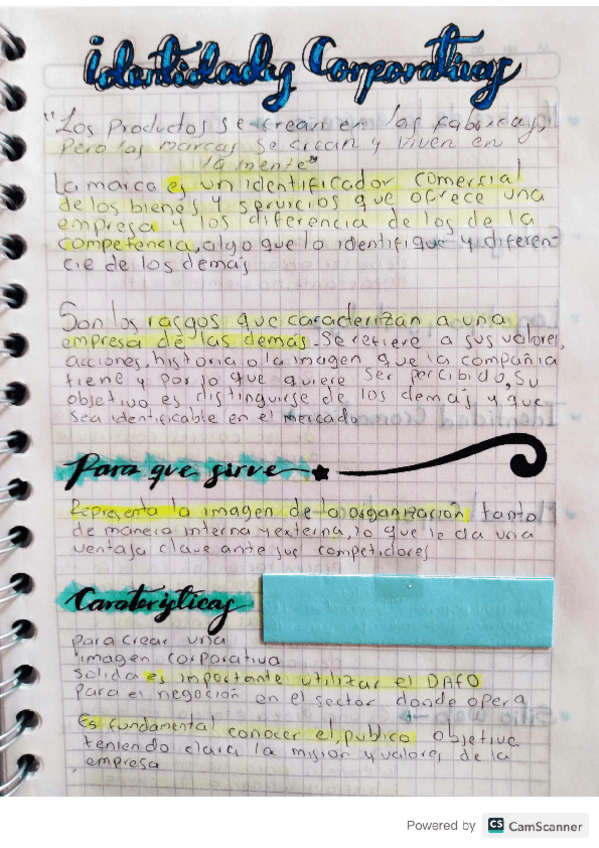 identidady Corporativas
"Los Productos se crean en las fabricas,
Pero las marcas se crean y viven en
la mente"
La marca es un identificador comercial
de los bienes y servicios que ofrece una
empresa y los diferencia de los de la
competencia, algo que lo identifique y diferen-
cie de los demas
Son los rasgos que caracterizan a una
empresa de las demas. Se refiere a sus valores,
acciones, historia o la imagen que la compañia
tiene y por lo que quiere ser percibido, su
objetivo es distinguirse de los demas y que
sea identificable en el mercado
Para que sirve
Representa la imagen de la organización tanto
de manera interna y externa, lo que le da una
ventaja clave ante sus competidores
Caraterísticas
para crear una
imagen corporativa
solida es importante utilizar el DAFO
para el negoción en el sector donde opera
Es fundamental conocer el publico objetivo
teniendo clara la misión y valores de la
empresa
Powered by CS CamScanner